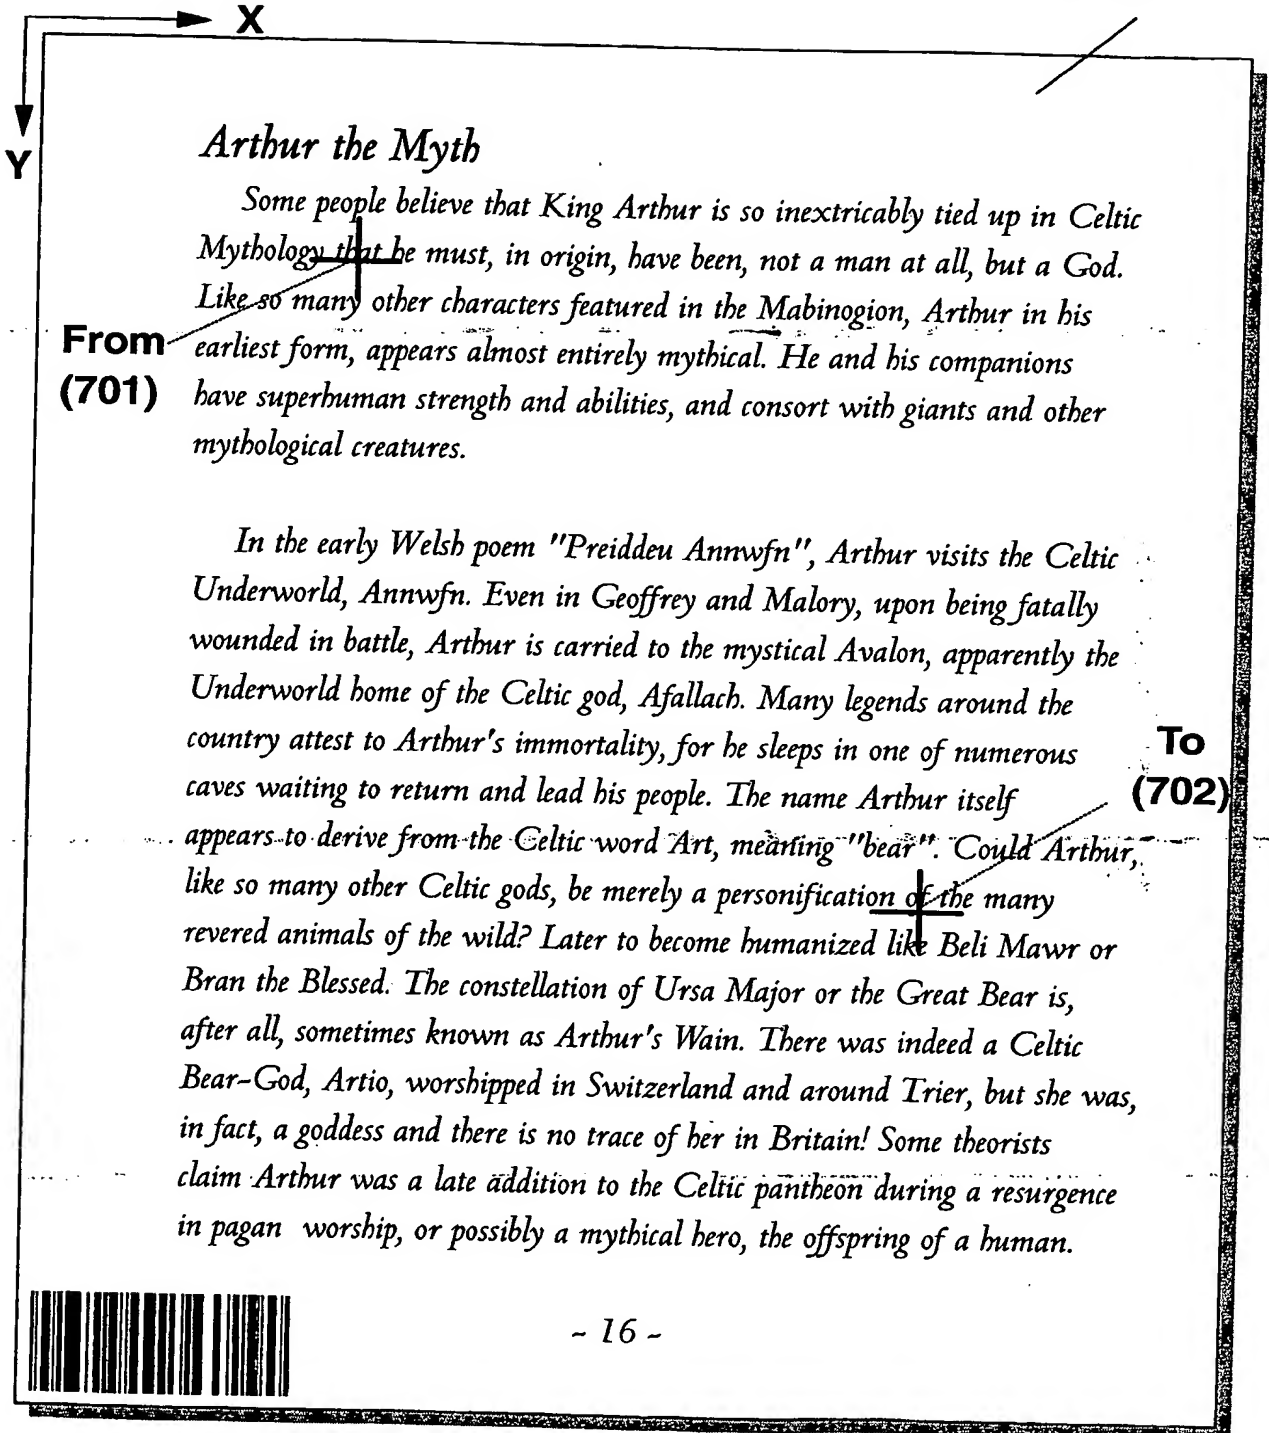 X
Y
Arthur the Myth
Some people believe that King Arthur is so inextricably tied up in Celtic
Mythology that he must, in origin, have been, not a man at all, but a God.
Like so many other characters featured in the Mabinogion, Arthur in his
earliest form, appears almost entirely mythical. He and his companions
have superhuman strength and abilities, and consort with giants and other
mythological creatures.
From
(701)
In the early Welsh poem "Preiddeu Annwfn", Arthur visits the Celtic
Underworld, Annwfn. Even in Geoffrey and Malory, upon being fatally
wounded in battle, Arthur is carried to the mystical Avalon, apparently the
Underworld home of the Celtic god, Afallach. Many legends around the
country attest to Arthur's immortality, for he sleeps in one of numerous
caves waiting to return and lead his people. The name Arthur itself
appears to derive from the Celtic word Art, meaning "bear". Could Arthur,
like so many other Celtic gods, be merely a personification of the many
revered animals of the wild? Later to become humanized like Beli Mawr or
Bran the Blessed. The constellation of Ursa Major or the Great Bear is,
after all, sometimes known as Arthur's Wain. There was indeed a Celtic
Bear-God, Artio, worshipped in Switzerland and around Trier, but she was,
in fact, a goddess and there is no trace of her in Britain! Some theorists
claim Arthur was a late addition to the Celtic pantheon during a resurgence
in pagan worship, or possibly a mythical hero, the offspring of a human.
To
(702)
~ 16 ~